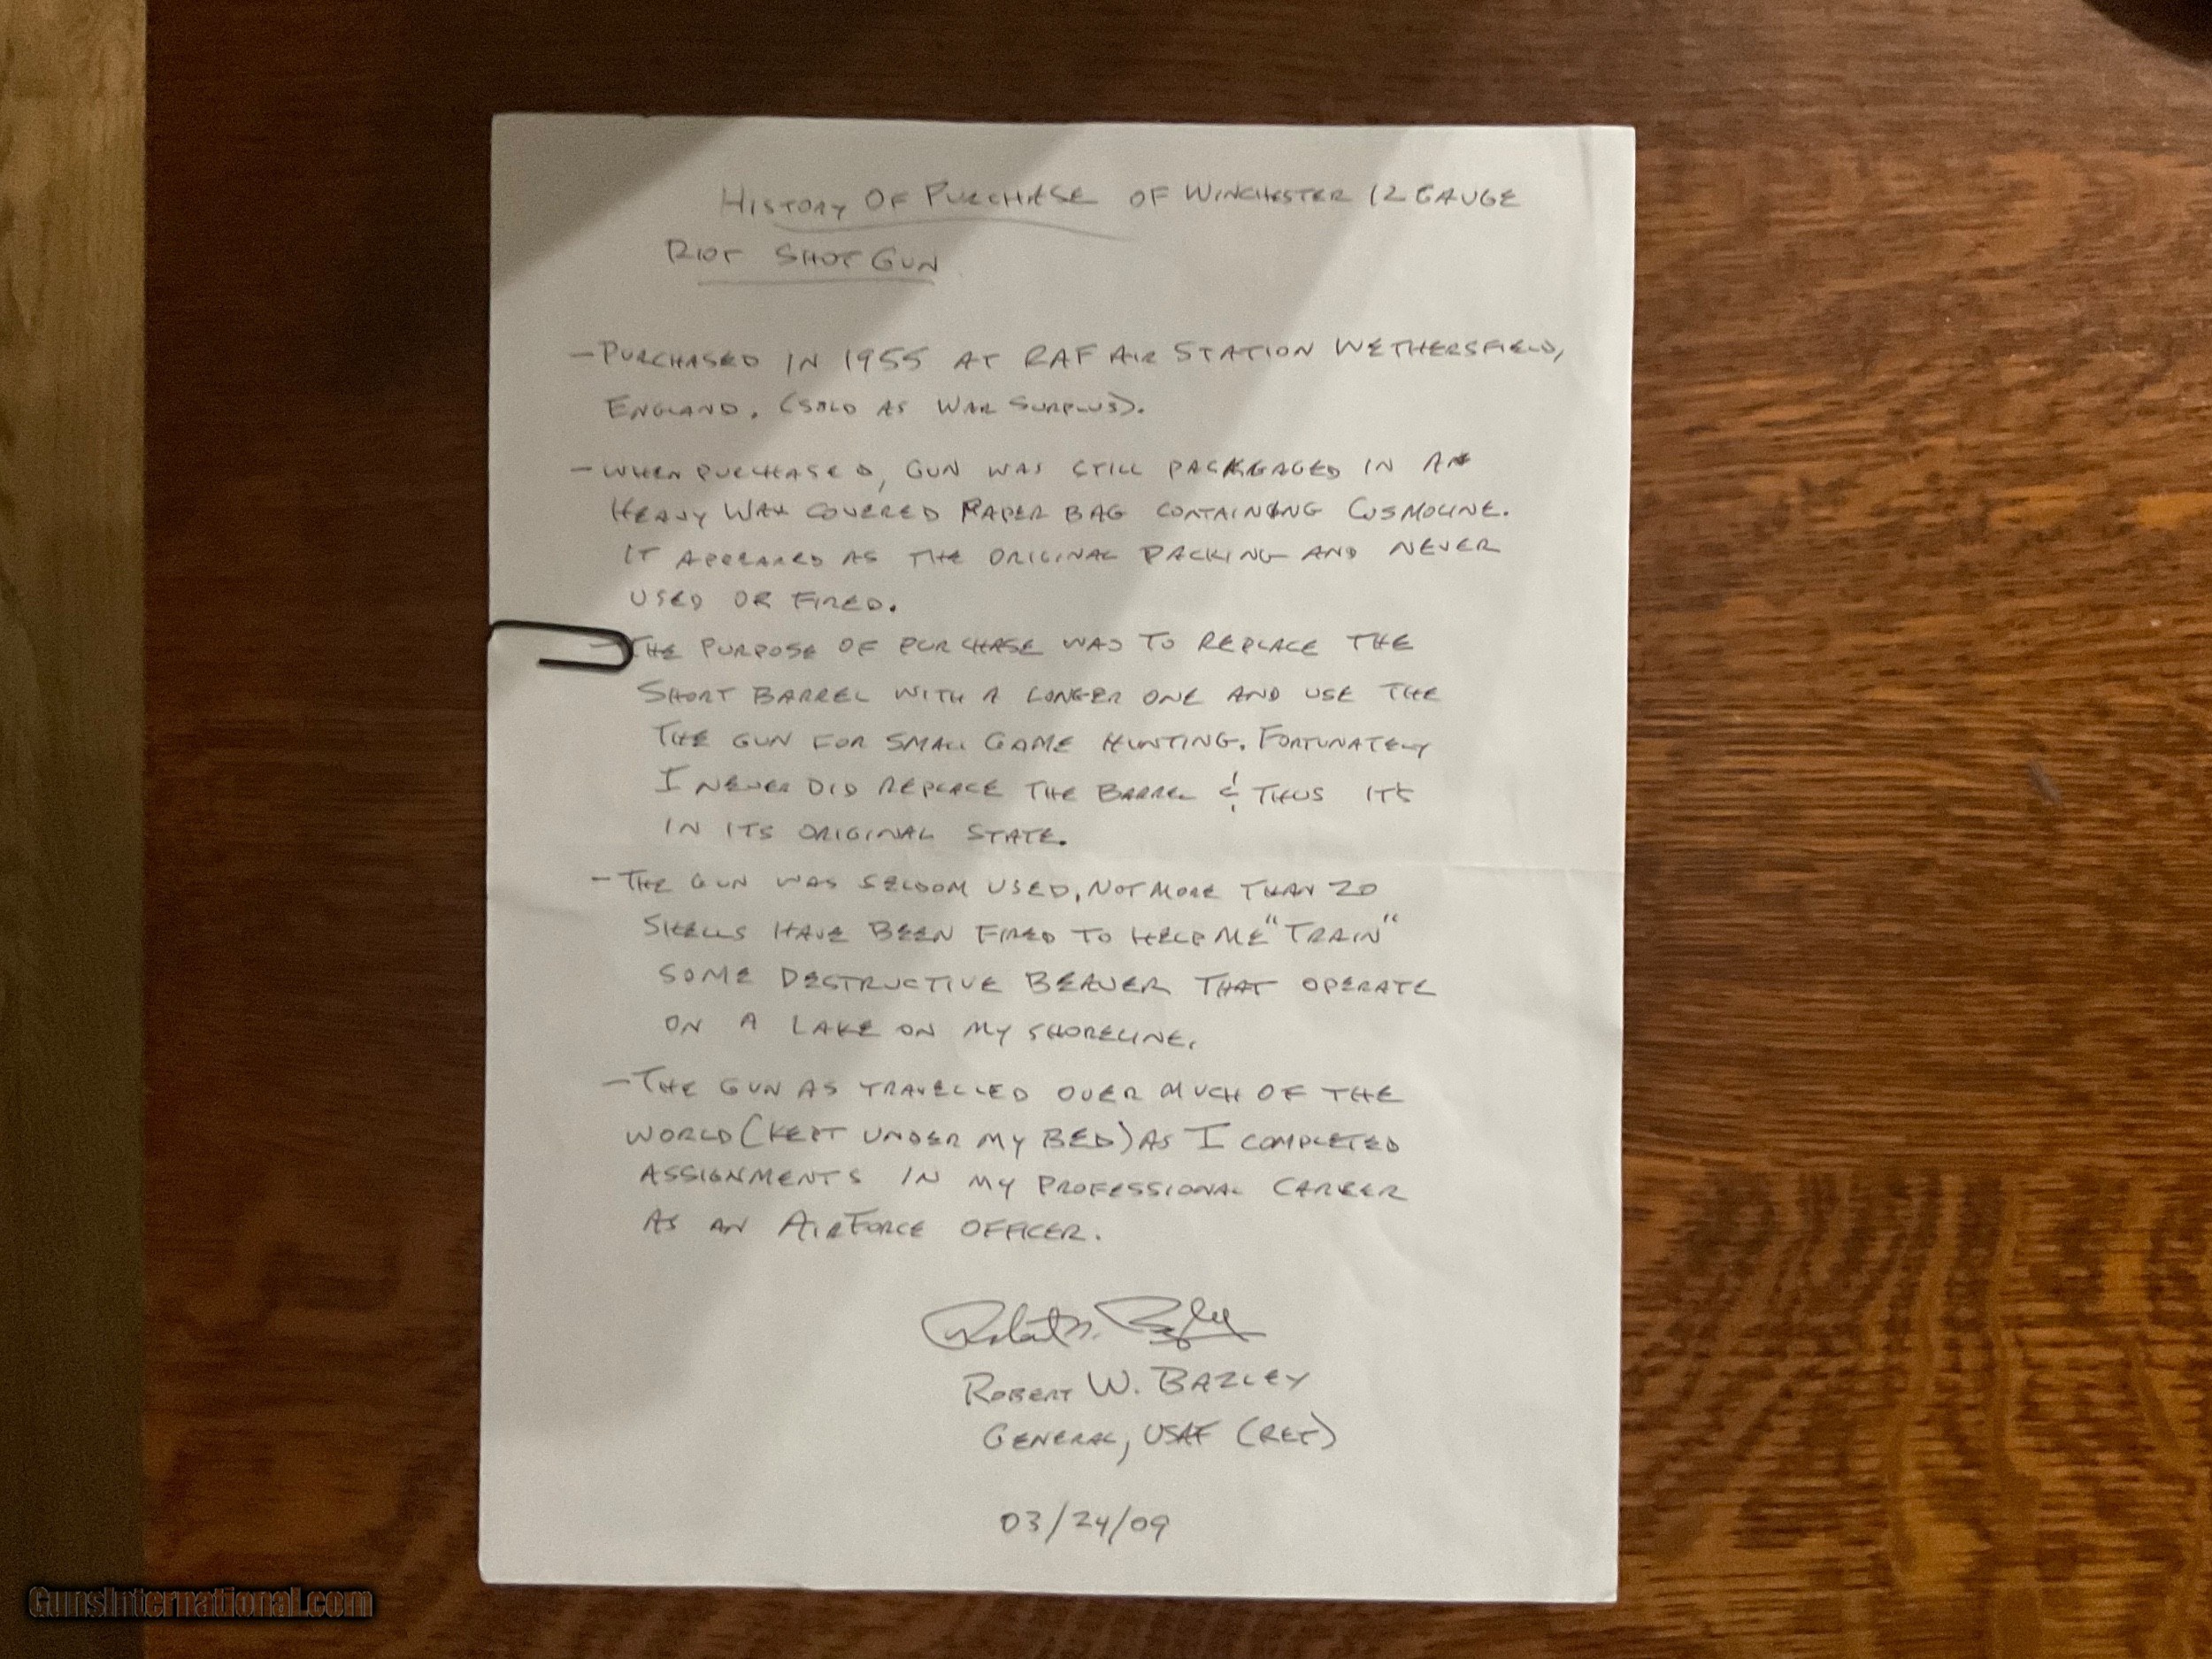 HISTORY OF PURCHASE OF WINCHESTER 12 GAUGE
RIOT SHOT GUN
- PURCHASED IN 1955 AT RAF AIR STATION WETHERSFIELD,
ENGLAND. (SOLD AS WAR SURPLUS).
- WHEN PURCHASED, GUN WAS STILL PACKGAGED IN A
HEAVY WAX COVERED PAPER BAG CONTAINING COSMOLINE.
IT APPEARED AS THE ORIGINAL PACKING AND NEVER
USED OR FIRED.
- THE PURPOSE OF PURCHASE WAS TO REPLACE THE
SHORT BARREL WITH A LONGER ONE AND USE THE
THE GUN FOR SMALL GAME HUNTING. FORTUNATELY
I NEVER DID REPLACE THE BARREL & THUS IT'S
IN ITS ORIGINAL STATE.
- THE GUN WAS SELDOM USED, NOT MORE THAN 20
SHELLS HAVE BEEN FIRED TO HELP ME "TRAIN"
SOME DESTRUCTIVE BEAVER THAT OPERATE
ON A LAKE ON MY SHORELINE.
- THE GUN AS TRAVELLED OVER MUCH OF THE
WORLD (KEPT UNDER MY BED) AS I COMPLETED
ASSIGNMENTS IN MY PROFESSIONAL CAREER
AS AN AIRFORCE OFFICER.
Robert W. Bazley
ROBERT W. BAZLEY
GENERAL, USAF (RET)
03/24/09
GunsInternational.com